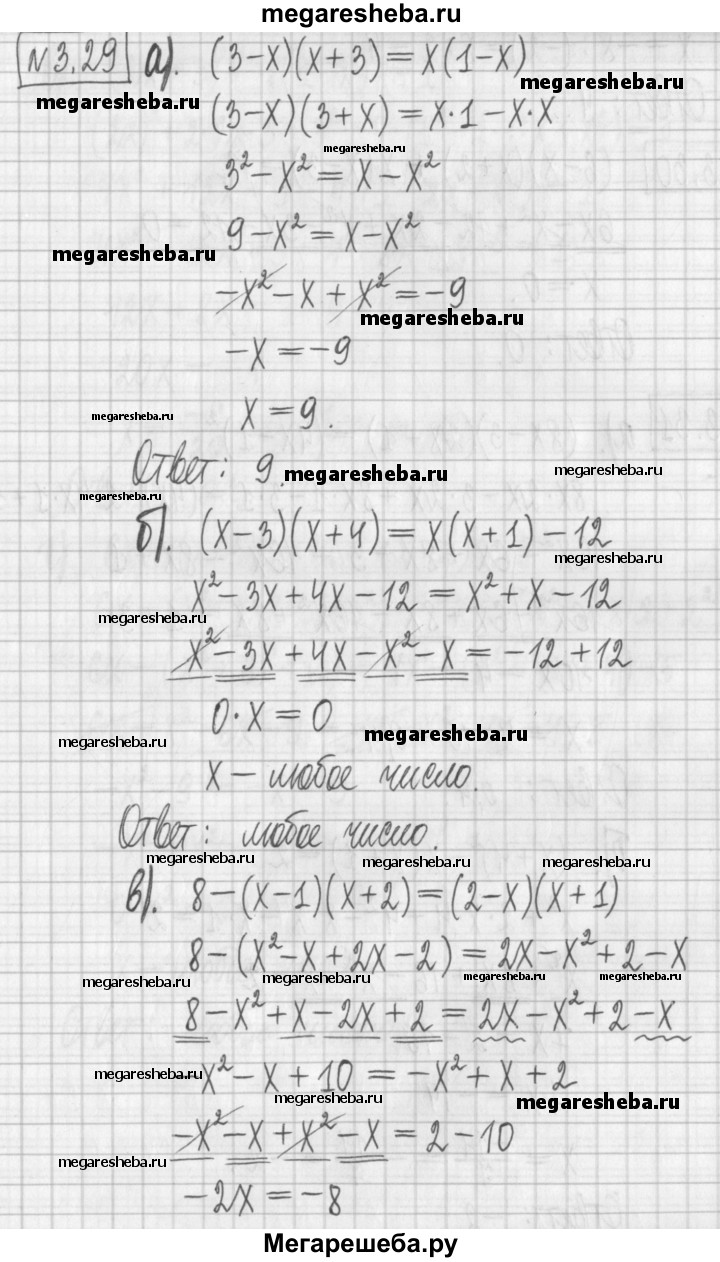 megaresheba.ru
№3.29 а). (3-x)(x+3)=x(1-x)
megaresheba.ru
megaresheba.ru
(3-x)(3+x)=x·1-x·x
megaresheba.ru
3²-x²=x-x²
9-x²=x-x²
megaresheba.ru
-x²-x+x²=-9
megaresheba.ru
-x=-9
x=9.
megaresheba.ru
Ответ: 9.
megaresheba.ru
megaresheba.ru
megaresheba.ru
б). (x-3)(x+4)=x(x+1)-12
megaresheba.ru
x²-3x+4x-12=x²+x-12
megaresheba.ru
x²-3x+4x-x²-x=-12+12
0·x=0
megaresheba.ru
megaresheba.ru
x – любое число.
Ответ: любое число.
megaresheba.ru
megaresheba.ru
megaresheba.ru
в). 8-(x-1)(x+2)=(2-x)(x+1)
8-(x²-x+2x-2)=2x-x²+2-x
megaresheba.ru
megaresheba.ru
megaresheba.ru
megaresheba.ru
8-x²+x-2x+2=2x-x²+2-x
megaresheba.ru
-x²-x+10=-x²+x+2
megaresheba.ru
megaresheba.ru
-x²-x+x²-x=2-10
megaresheba.ru
-2x=-8
Мегарешеба.ру